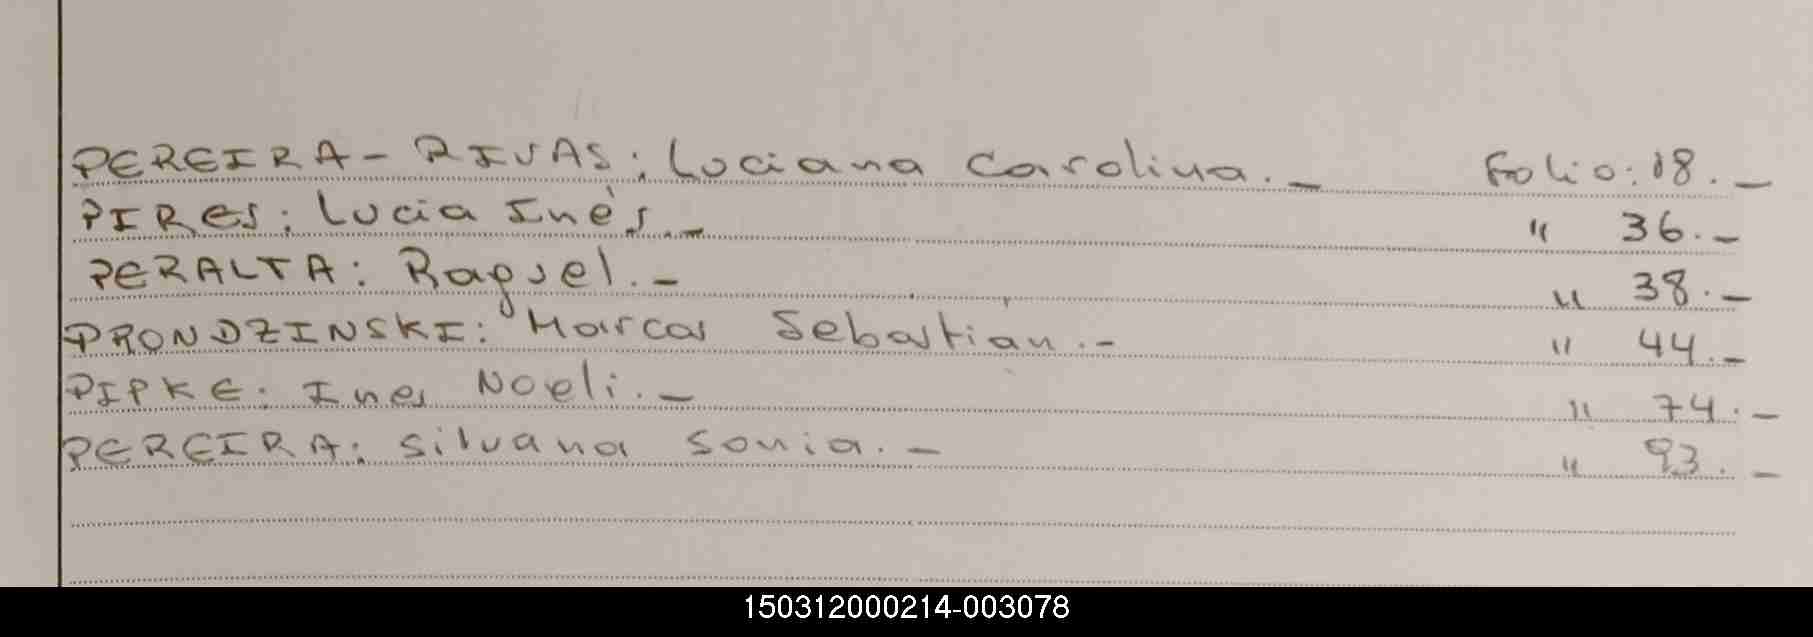 PEREIRA - RIVAS: Luciana Carolina._ Folio: 18._
PIRES: Lucia Inés._ " 36._
PERALTA: Raquel._ " 38._
PRONDZINSKI: Marcos Sebastian._ " 44._
PIPKE: Ines Noeli._ " 74._
PEREIRA: Silvana Sonia._ " 93._
150312000214-003078